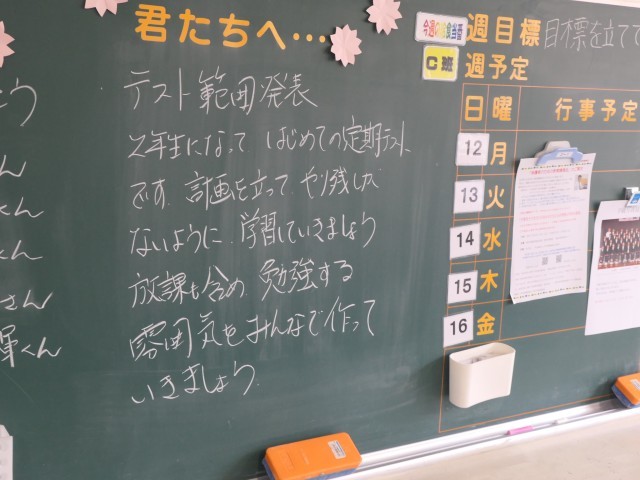 君たちへ…
テスト範囲発表
2年生になって はじめての定期テスト
です。計画を立って やり残しが
ないように、学習していきましょう
放課も含め、勉強する
雰囲気をみんなで作って
いきましょう。
う
ん
くん
くん
さん
輝くん
今週の給食当番
C班
週目標 目標を立てて
週予定
日 曜 行事予定
12 月
13 火
14 水
15 木
16 金